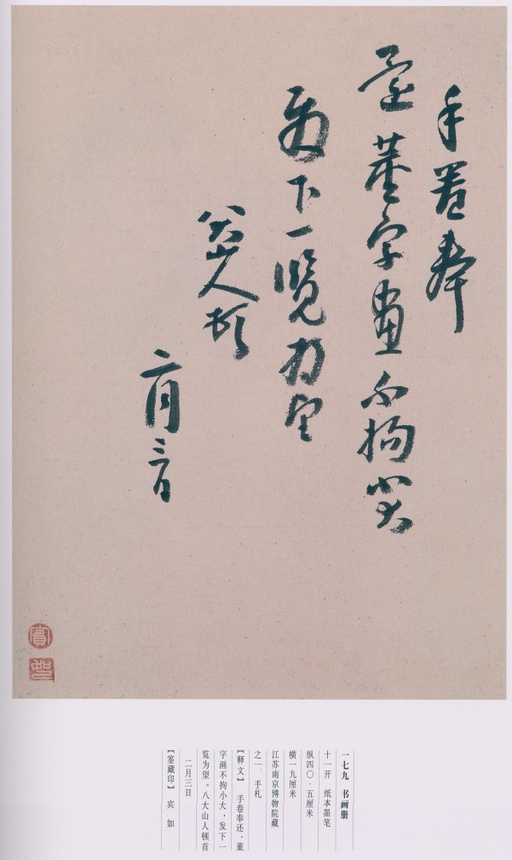 手卷奉
还董字画不拘小大
发下一览为望
八大山人顿首
二月三日
一七九 书画册
十一开 纸本墨笔
纵四〇·五厘米
横一九厘米
江苏南京博物院藏
之一 手札
【释文】 手卷奉还,董
字画不拘小大,发下一
览为望。八大山人顿首
二月三日
【鉴藏印】 宾 如